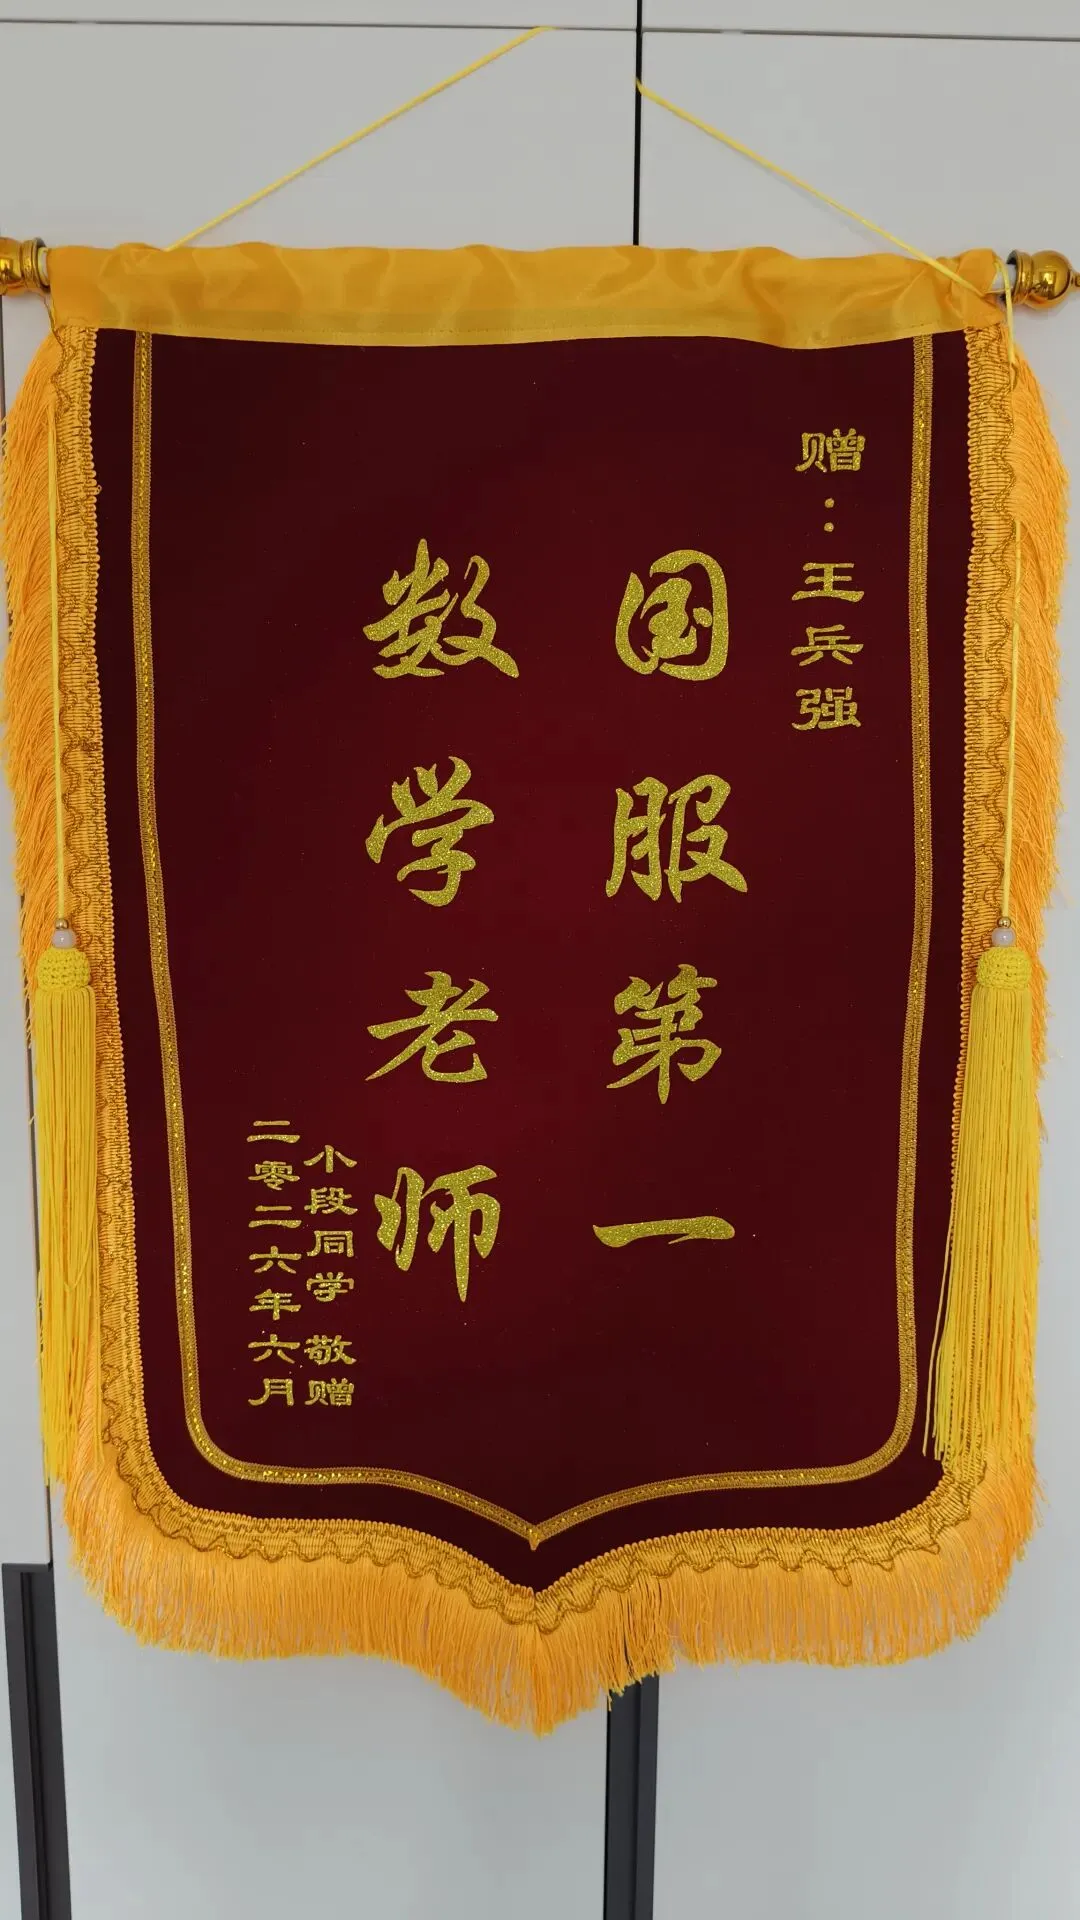 赠：王兵强
国服第一
数学老师
小段同学 敬赠
二零二六年六月